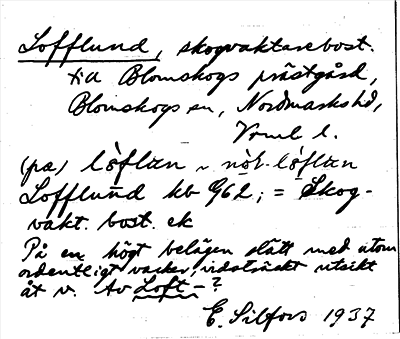 Lofflund, skogvaktarebost.
t.a Blomskogs prästgård,
Blomskogs sn, Nordmarks hd,
Vrml l.
(på) lòflan ~ nòl-lòflan
Lofflund kb G62; = Skog-
vakt. bost. ek
På en högt belägen slätt med utom
ordentligt vacker, vidsträckt utsikt
åt v. Av Loft-?
E. Silfors 1937